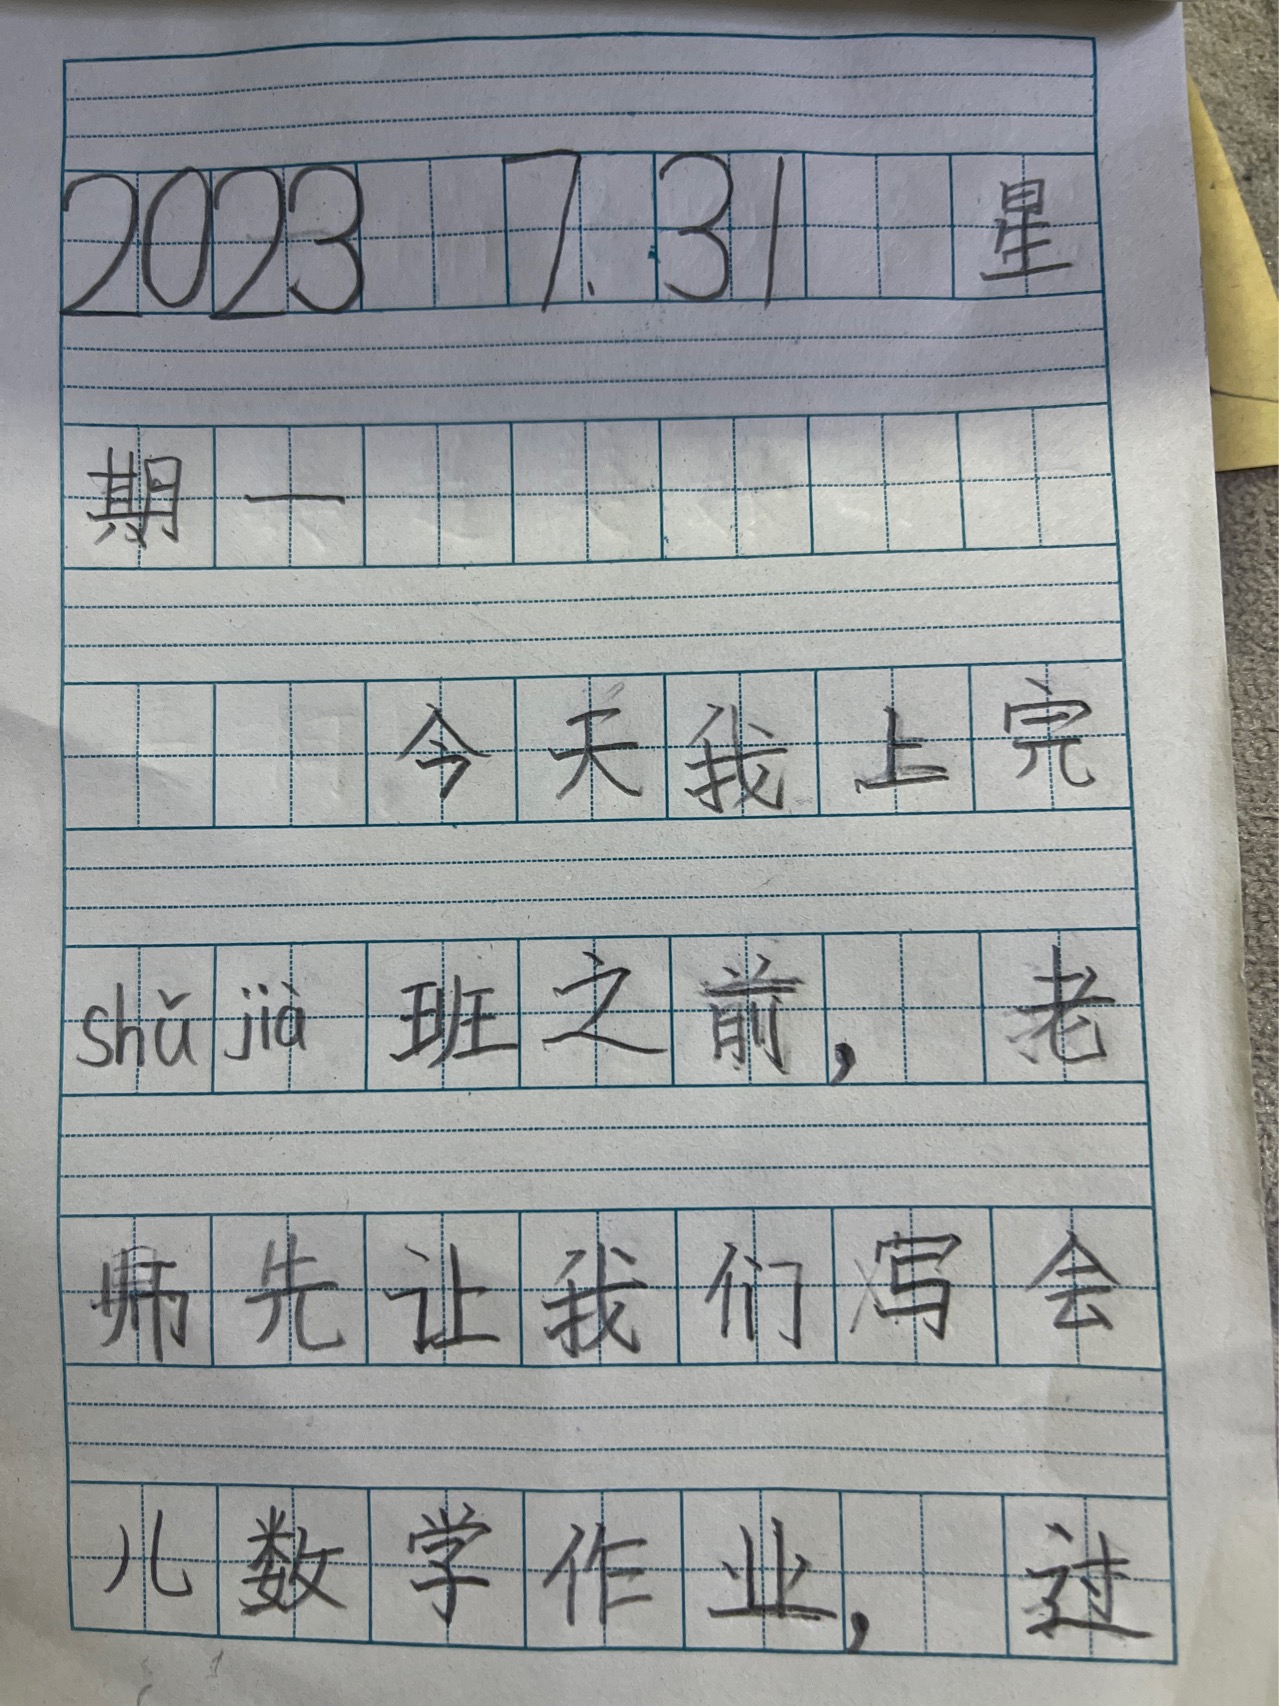 2023 7.31 星
期一
今天我上完
shǔ jià 班之前，老
师先让我们写会
儿数学作业，过